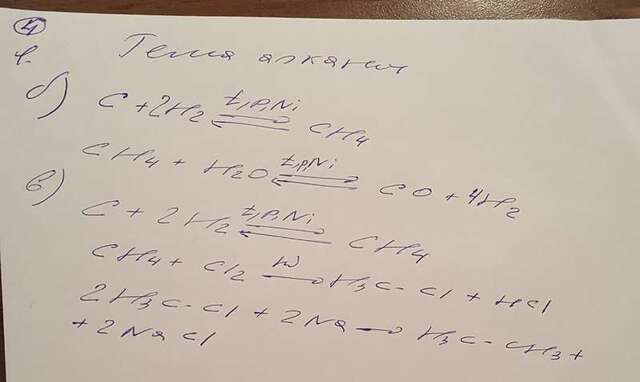 4
1. Тема алканы
б) C + 2H2 t,P,Ni ⇄ CH4
CH4 + H2O t,p,Ni ⇄ CO + 4H2
в)
C + 2H2 t,P,Ni ⇄ CH4
CH4 + Cl2 hν → H3C-Cl + HCl
2H3C-Cl + 2Na → H3C-CH3 +
+ 2NaCl